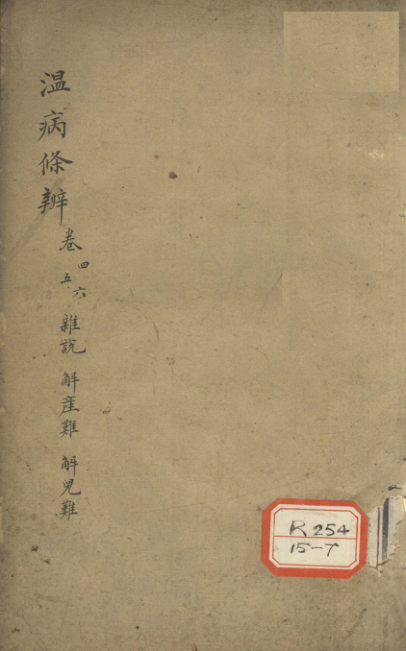 温病條辨卷四五六 雜說 解產難 解兒難
R254
15-7